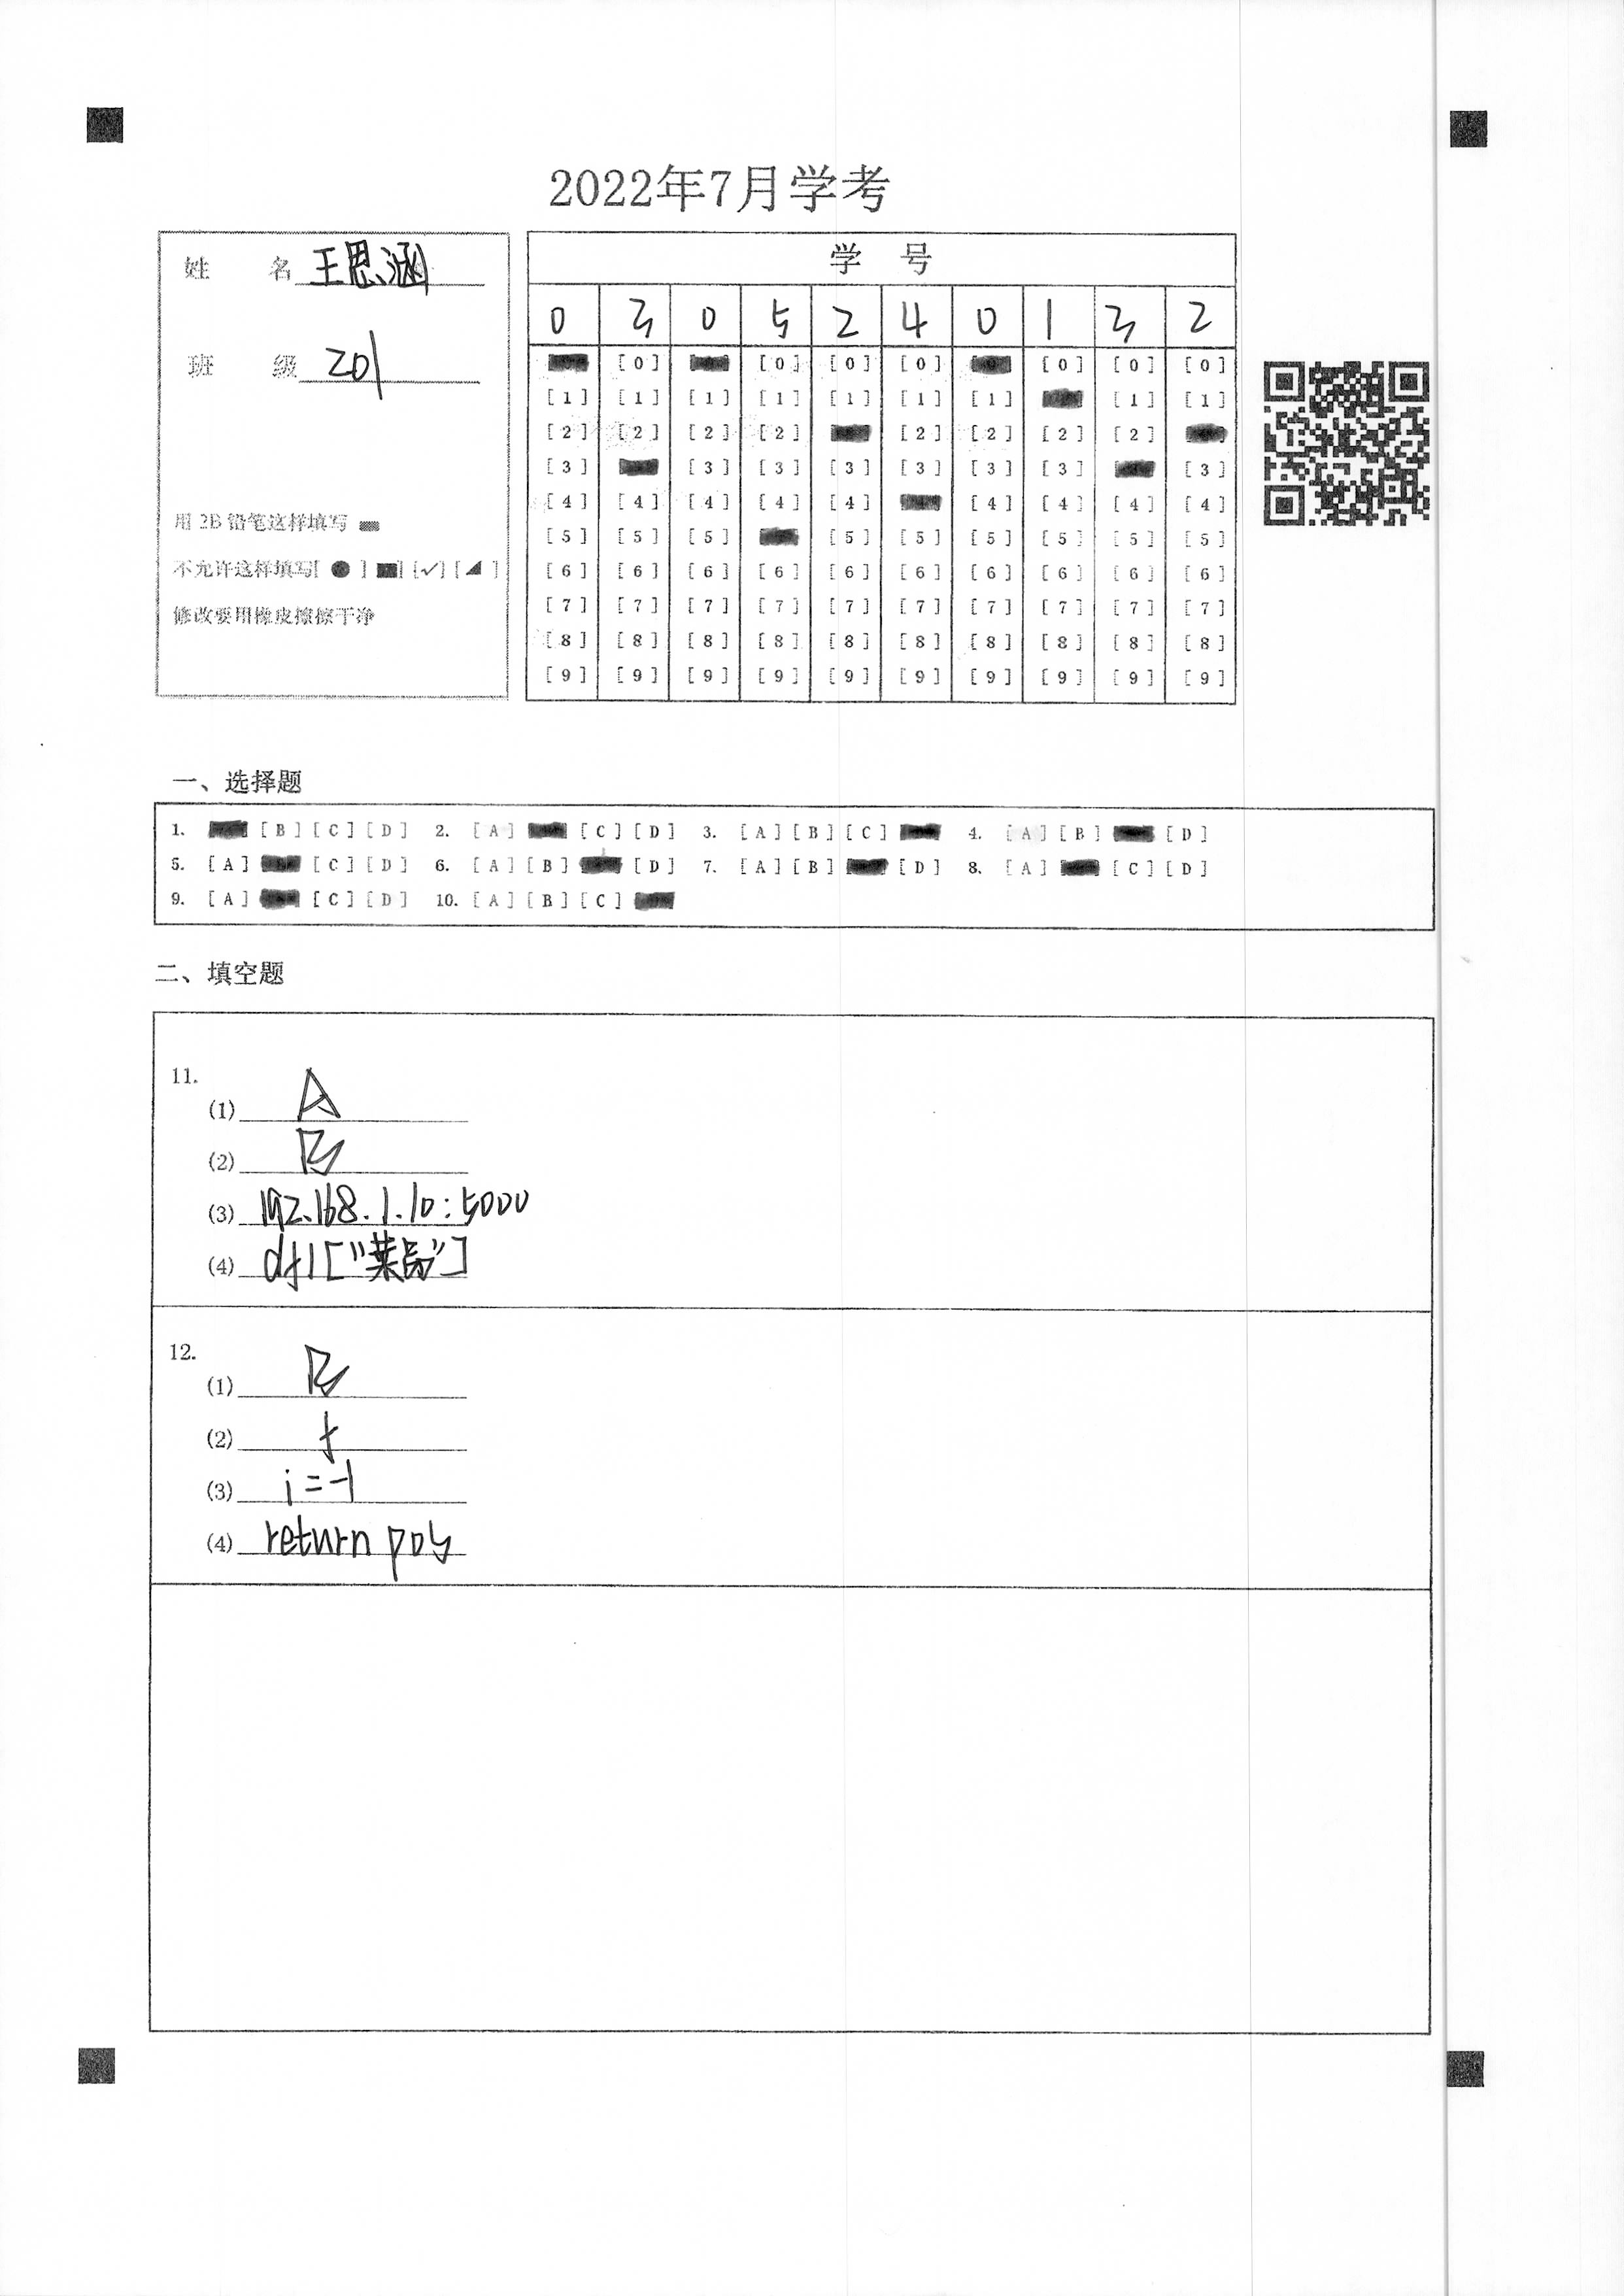 2022年7月学考
姓 名 王思涵
班 级 201
用 2B 铅笔这样填写
不允许这样填写[ ● ] [■] [✓] [◢ ]
修改要用橡皮擦擦干净
学 号
0 3 0 5 2 4 0 1 3 2
[0] [0] [0] [0] [0] [0] [0]
[1] [1] [1] [1] [1] [1] [1] [1] [1]
[2] [2] [2] [2] [2] [2] [2] [2]
[3] [3] [3] [3] [3] [3] [3] [3]
[4] [4] [4] [4] [4] [4] [4] [4] [4]
[5] [5] [5] [5] [5] [5] [5] [5] [5]
[6] [6] [6] [6] [6] [6] [6] [6] [6] [6]
[7] [7] [7] [7] [7] [7] [7] [7] [7] [7]
[8] [8] [8] [8] [8] [8] [8] [8] [8] [8]
[9] [9] [9] [9] [9] [9] [9] [9] [9] [9]
一、选择题
1. [B] [C] [D] 2. [A] [C] [D] 3. [A] [B] [C] 4. [A] [B] [D]
5. [A] [C] [D] 6. [A] [B] [D] 7. [A] [B] [D] 8. [A] [C] [D]
9. [A] [C] [D] 10. [A] [B] [C]
二、填空题
11.
(1) A
(2) B
(3) 192.168.1.10:5000
(4) df1["菜品"]
12.
(1) B
(2) f
(3) i=-1
(4) return pos